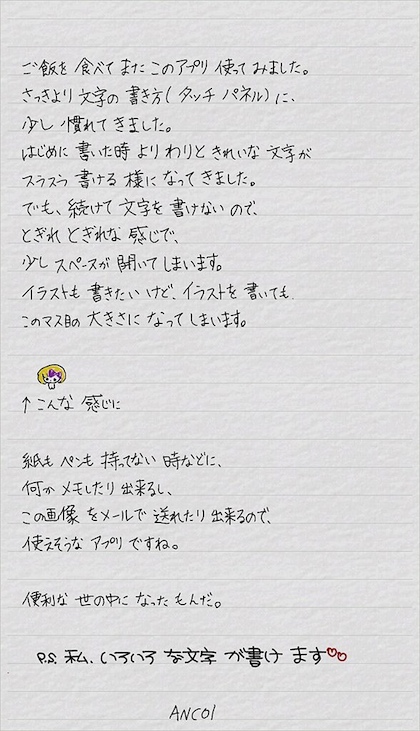 ご飯を食べてまたこのアプリ使ってみました。
さっきより文字の書き方(タッチパネル)に、
少し慣れてきました。
はじめに書いた時よりわりときれいな文字が
スラスラ書ける様になってきました。
でも、続けて文字を書けないので、
とぎれとぎれな感じで、
少しスペースが開いてしまいます。
イラストも書きたいけど、イラストを書いても
このマス目の大きさになってしまいます。
↑こんな感じに
紙もペンも持ってない時などに、
何かメモしたり出来るし、
この画像をメールで送れたり出来るので、
使えそうなアプリですね。
便利な世の中になったもんだ。
P.S. 私、いろいろな文字が書けます♡♡
ANCO1